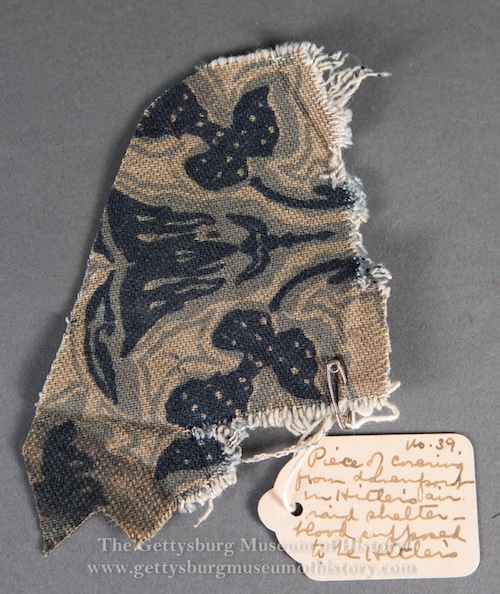 No. 39.
Piece of covering
from davenport
in Hitler's air
raid shelter –
blood supposed
to be Hitler's
The Gettysburg Museum of History
www.gettysburgmuseumofhistory.com